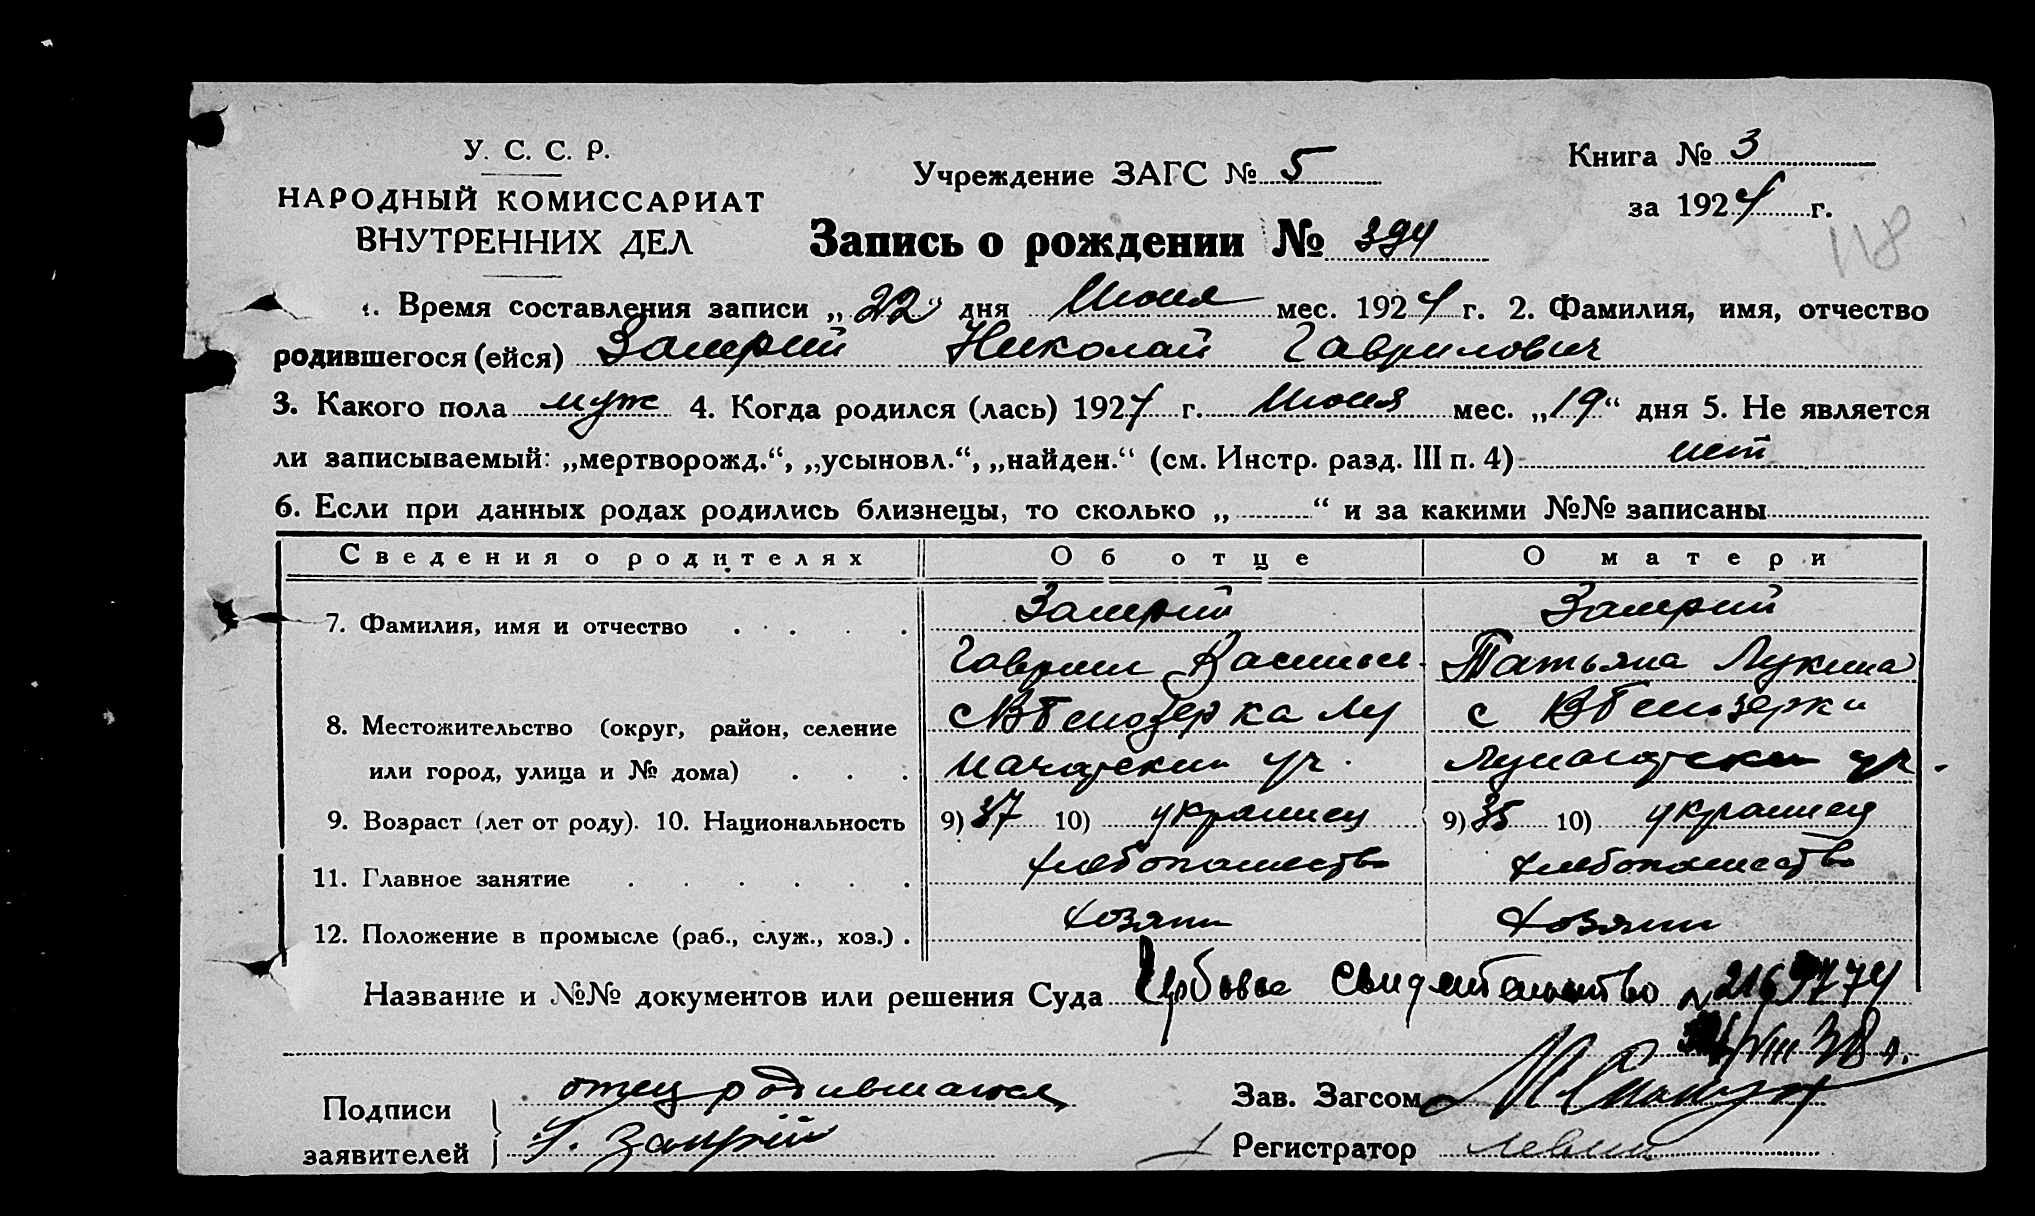 У. С. С. Р.
НАРОДНЫЙ КОМИССАРИАТ
ВНУТРЕННИХ ДЕЛ
Учреждение ЗАГС № 5
Книга № 3
за 1924 г.
118
Запись о рождении № 394
1. Время составления записи „22“ дня Июня мес. 1924 г. 2. Фамилия, имя, отчество
родившегося (ейся) Замрий Николай Гаврилович
3. Какого пола муж 4. Когда родился (лась) 1924 г. Июня мес. „19“ дня 5. Не является
ли записываемый: „мертворожд.“, „усыновл.“, „найден.“ (см. Инстр. разд. III п. 4) нет
6. Если при данных родах родились близнецы, то сколько „ “ и за какими №№ записаны
Сведения о родителях Об отце О матери
7. Фамилия, имя и отчество Замрий Замрий
Гаврил Васильев. Татьяна Лукина
8. Местожительство (округ, район, селение с с
или город, улица и № дома)
9. Возраст (лет от роду). 10. Национальность 9) 37 10) украинец 9) 35 10) украинец
11. Главное занятие хлебопашество хлебопашество
12. Положение в промысле (раб., служ., хоз.) хозяин хозяин
Название и №№ документов или решения Суда свидетельство
VIII 38 г.
Подписи отец родившагося Зав. Загсом
заявителей Г. Замрій Регистратор